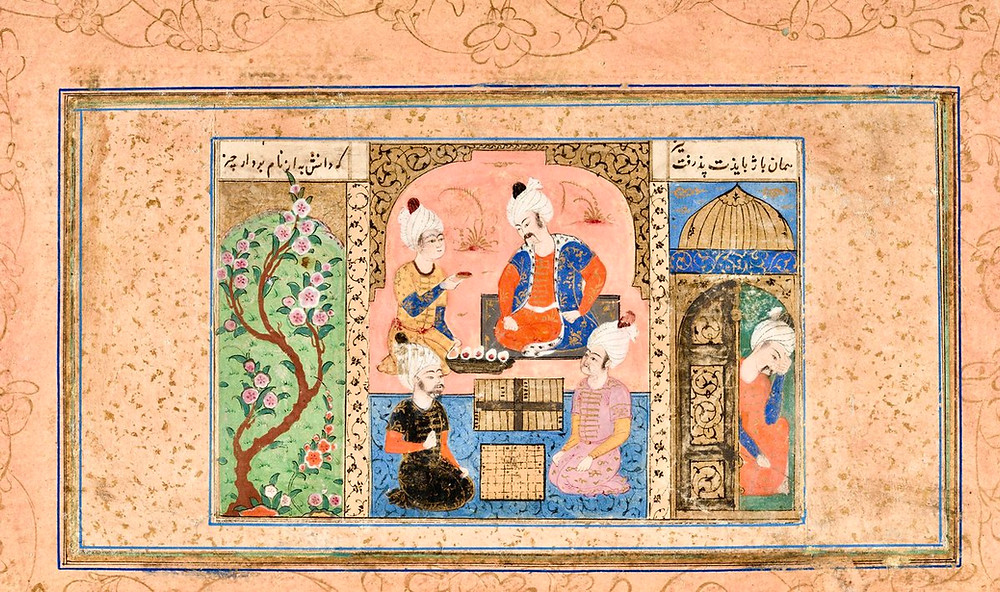 همان باژ بایدت پذرفت نیز
که دانش به از نام بردار چیز